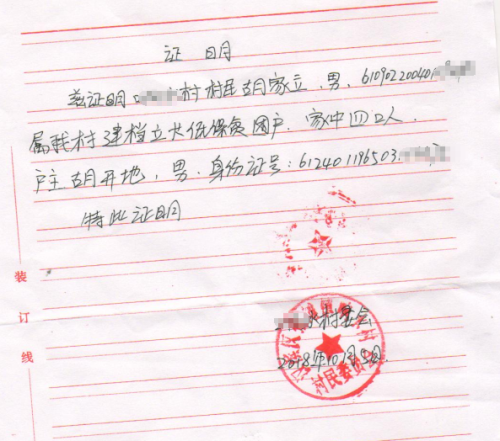 证 明
兹证明 村村民胡家立、男、610902200401
属我村建档立卡低保贫困户.家中四口人.
户主胡开地,男、身份证号:612401196503.
特此证明
村委会
2018年10月 日
村民委员会
装
订
线